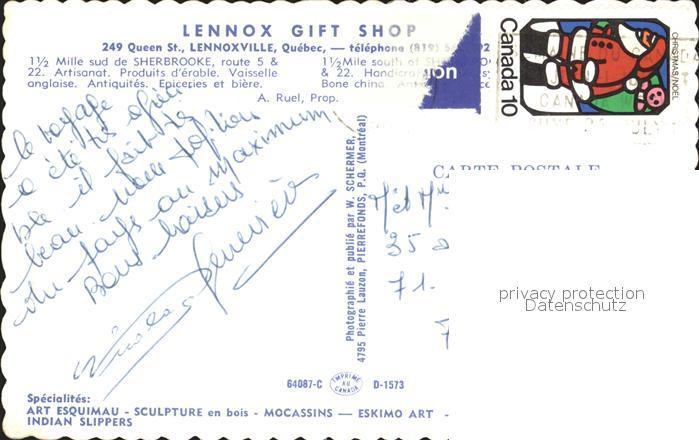 LENNOX GIFT SHOP
249 Queen St., LENNOXVILLE, Québec, — téléphone (819) 5 92
1½ Mille sud de SHERBROOKE, route 5 &
22. Artisanat. Produits d'érable. Vaisselle
anglaise. Antiquités. Epiceries et bière.
1½ Mile south of SHERBROOKE
& 22. Handicrafts
Bone china.
A. Ruel, Prop.
on
CHRISTMAS/NOËL
Canada 10
CARTE POSTALE
le voyage
a été très agréa
ble il fait très
beau. nous profitons
du pays au maximum
Bons baisers
Nicolas Geneviève
Photographié et publié par W. SCHERMER,
4795 Pierre Lauzon, PIERREFONDS, P.Q. (Montréal)
35
71.
7
privacy protection
Datenschutz
64087-C IMPRIMÉ AU CANADA D-1573
Spécialités:
ART ESQUIMAU - SCULPTURE en bois - MOCASSINS — ESKIMO ART -
INDIAN SLIPPERS